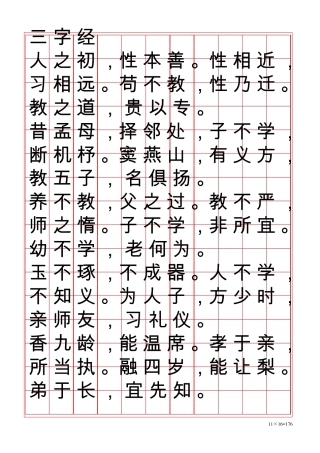 三字经
人之初，性本善。性相近，
习相远。苟不教，性乃迁。
教之道，贵以专。
昔孟母，择邻处，子不学，
断机杼。窦燕山，有义方，
教五子，名俱扬。
养不教，父之过。教不严，
师之惰。子不学，非所宜。
幼不学，老何为。
玉不琢，不成器。人不学，
不知义。为人子，方少时，
亲师友，习礼仪。
香九龄，能温席。孝于亲，
所当执。融四岁，能让梨。
弟于长，宜先知。
11×16=176